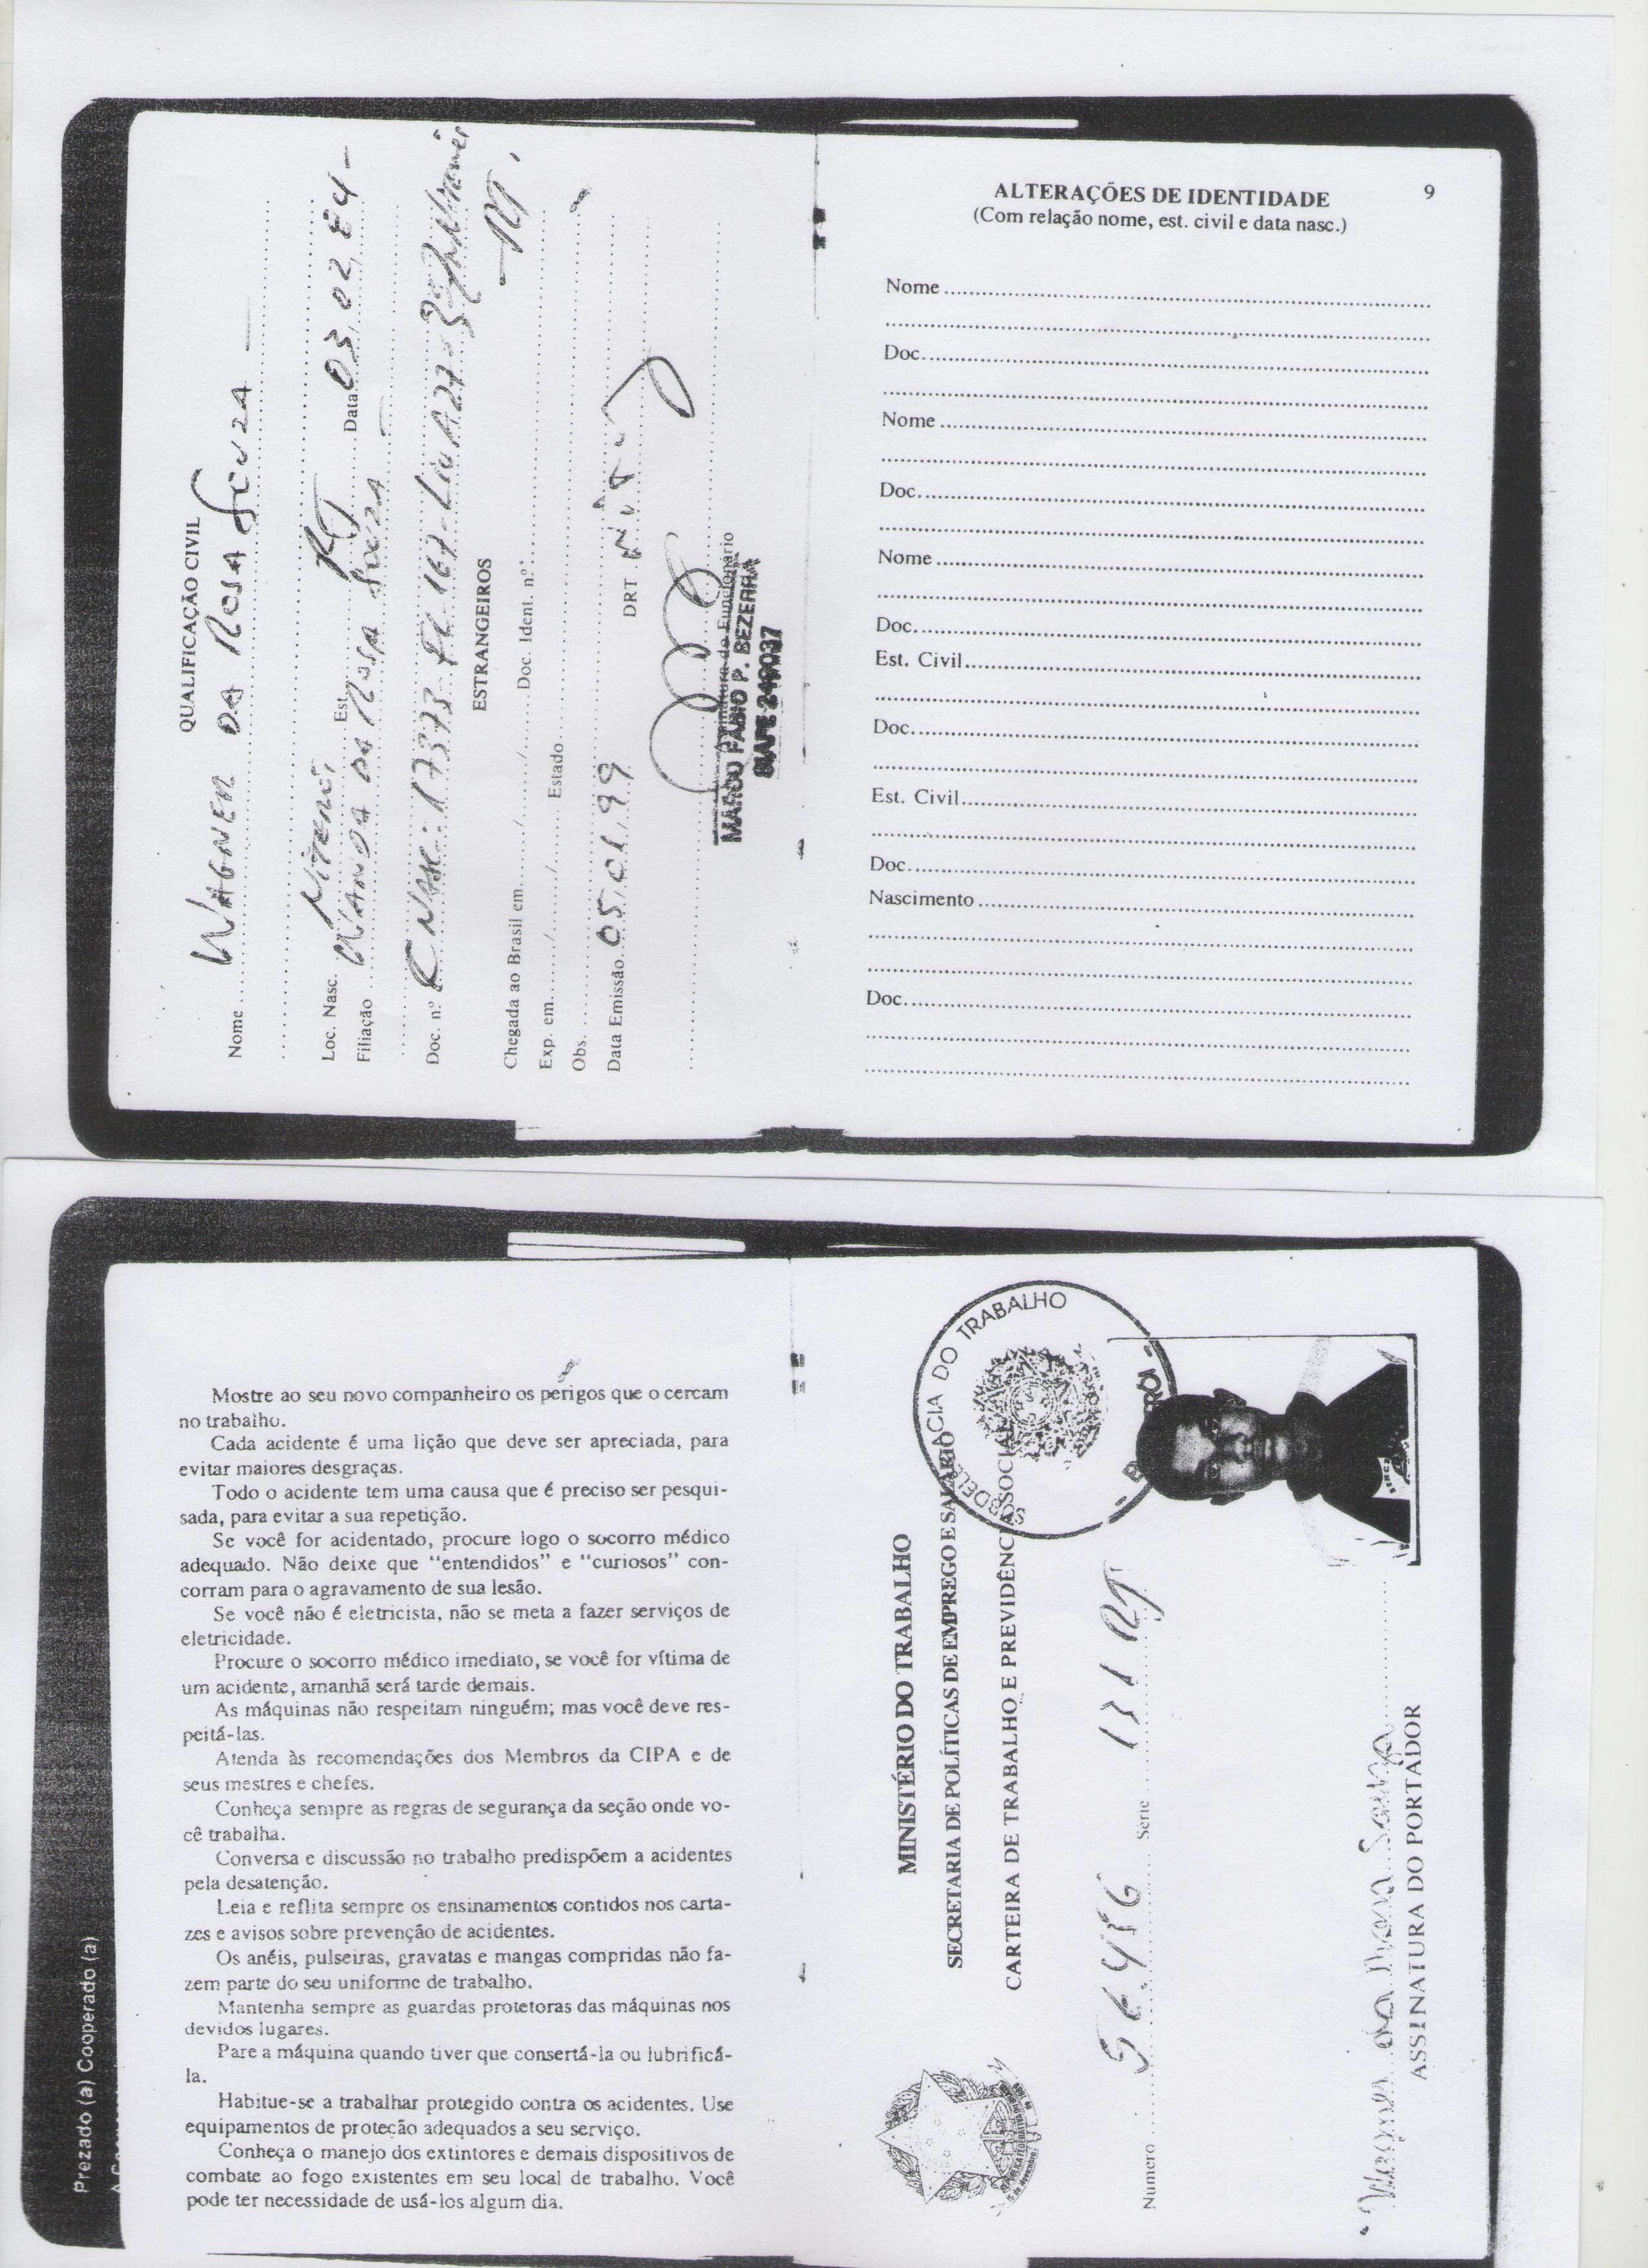 QUALIFICAÇÃO CIVIL
Nome WAGNER DA ROSA SOUZA
Loc. Nasc. NITERÓI Est. RJ Data 03.02.84
Filiação WANDA DA ROSA SOUZA
Doc. n.º C. NASC: 17373 FL 167 - LIV A 27 -
RJ
ESTRANGEIROS
Chegada ao Brasil em ...../...../..... Doc. Ident. n.º
Exp. em ...../...../..... Estado
Obs.
Data Emissão 05/01/99 DRT
Assinatura do Funcionário
MARCO FABIO P. BEZERRA
SIAPE 249037
ALTERAÇÕES DE IDENTIDADE 9
(Com relação nome, est. civil e data nasc.)
Nome
Doc.
Nome
Doc.
Nome
Doc.
Est. Civil
Doc.
Est. Civil
Doc.
Nascimento
Doc.
Prezado (a) Cooperado (a)
Mostre ao seu novo companheiro os perigos que o cercam
no trabalho.
Cada acidente é uma lição que deve ser apreciada, para
evitar maiores desgraças.
Todo o acidente tem uma causa que é preciso ser pesqui-
sada, para evitar a sua repetição.
Se você for acidentado, procure logo o socorro médico
adequado. Não deixe que "entendidos" e "curiosos" con-
corram para o agravamento de sua lesão.
Se você não é eletricista, não se meta a fazer serviços de
eletricidade.
Procure o socorro médico imediato, se você for vítima de
um acidente, amanhã será tarde demais.
As máquinas não respeitam ninguém; mas você deve res-
peitá-las.
Atenda às recomendações dos Membros da CIPA e de
seus mestres e chefes.
Conheça sempre as regras de segurança da seção onde vo-
cê trabalha.
Conversa e discussão no trabalho predispõem a acidentes
pela desatenção.
Leia e reflita sempre os ensinamentos contidos nos carta-
zes e avisos sobre prevenção de acidentes.
Os anéis, pulseiras, gravatas e mangas compridas não fa-
zem parte do seu uniforme de trabalho.
Mantenha sempre as guardas protetoras das máquinas nos
devidos lugares.
Pare a máquina quando tiver que consertá-la ou lubrificá-
la.
Habitue-se a trabalhar protegido contra os acidentes. Use
equipamentos de proteção adequados a seu serviço.
Conheça o manejo dos extintores e demais dispositivos de
combate ao fogo existentes em seu local de trabalho. Você
pode ter necessidade de usá-los algum dia.
MINISTÉRIO DO TRABALHO
SECRETARIA DE POLÍTICAS DE EMPREGO E SALÁRIO
CARTEIRA DE TRABALHO E PREVIDÊNCIA SOCIAL
SUBDELEGACIA DO TRABALHO
Numero Serie 131 RJ
Wagner da Rosa Souza
ASSINATURA DO PORTADOR